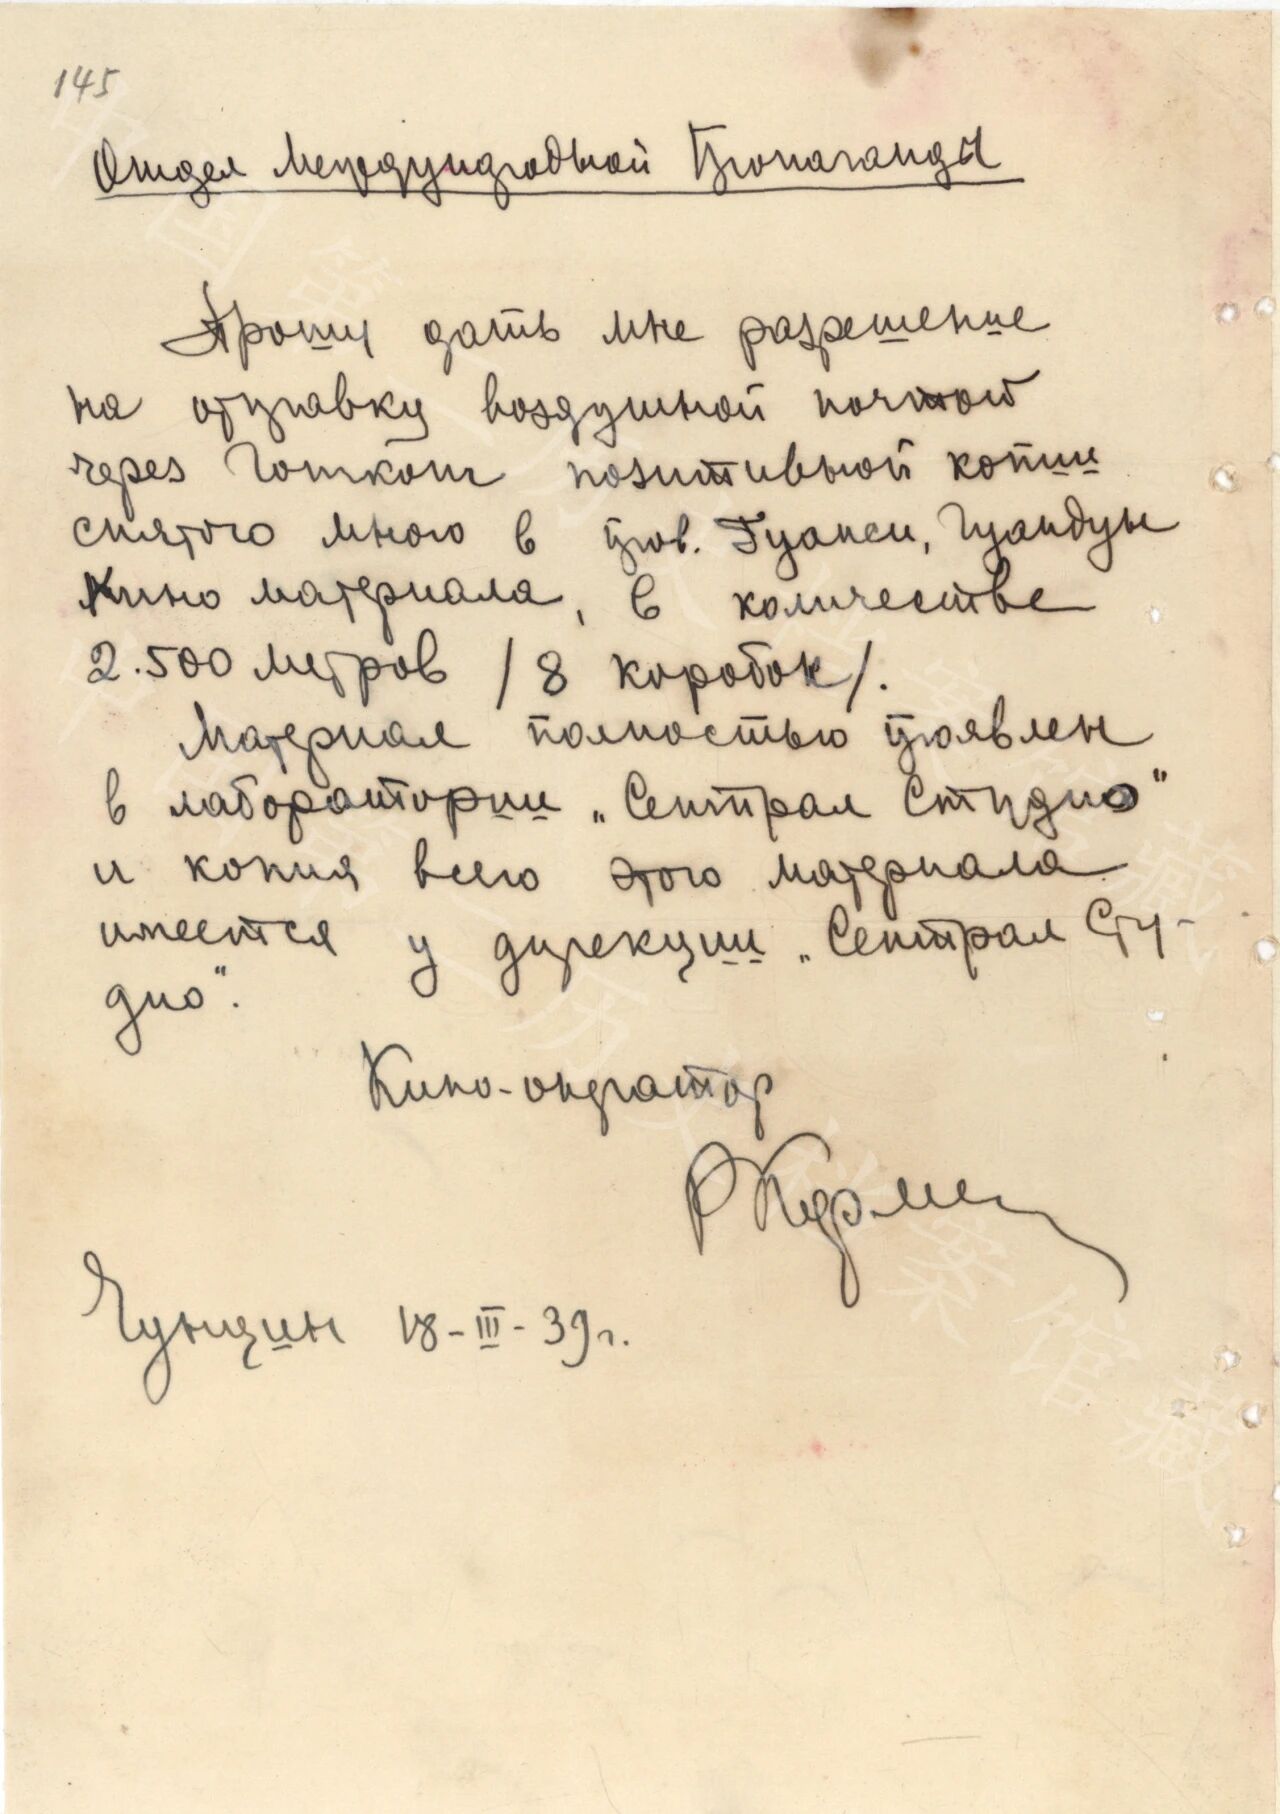 145
Отдел Международной Пропаганды
Прошу дать мне разрешение
на отправку воздушной почтой
через Гонконг позитивной копии
снятого мною в пров. Гуанси, Гуандун
Кино материала, в количестве
2.500 метров /8 коробок/.
Материал полностью проявлен
в лаборатории „Сентрал Студио"
и копия всего этого материала
имеется у дирекции „Сентрал Сту-
дио".
Кино-оператор
Р Кармен
Чунцин 18-III-39 г.
藏
案
馆
藏